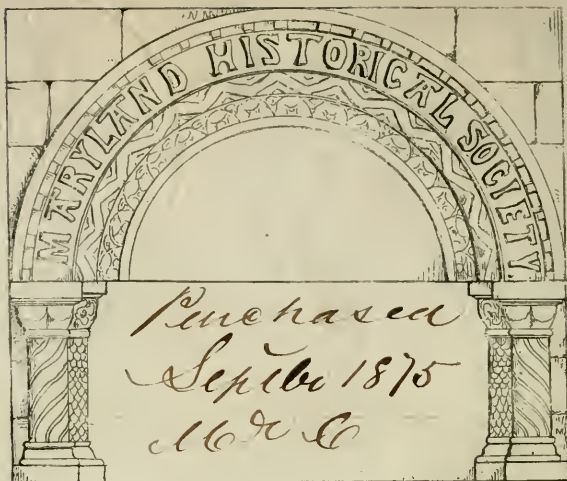 MARYLAND HISTORICAL SOCIETY
Purchased
Septbr 1875